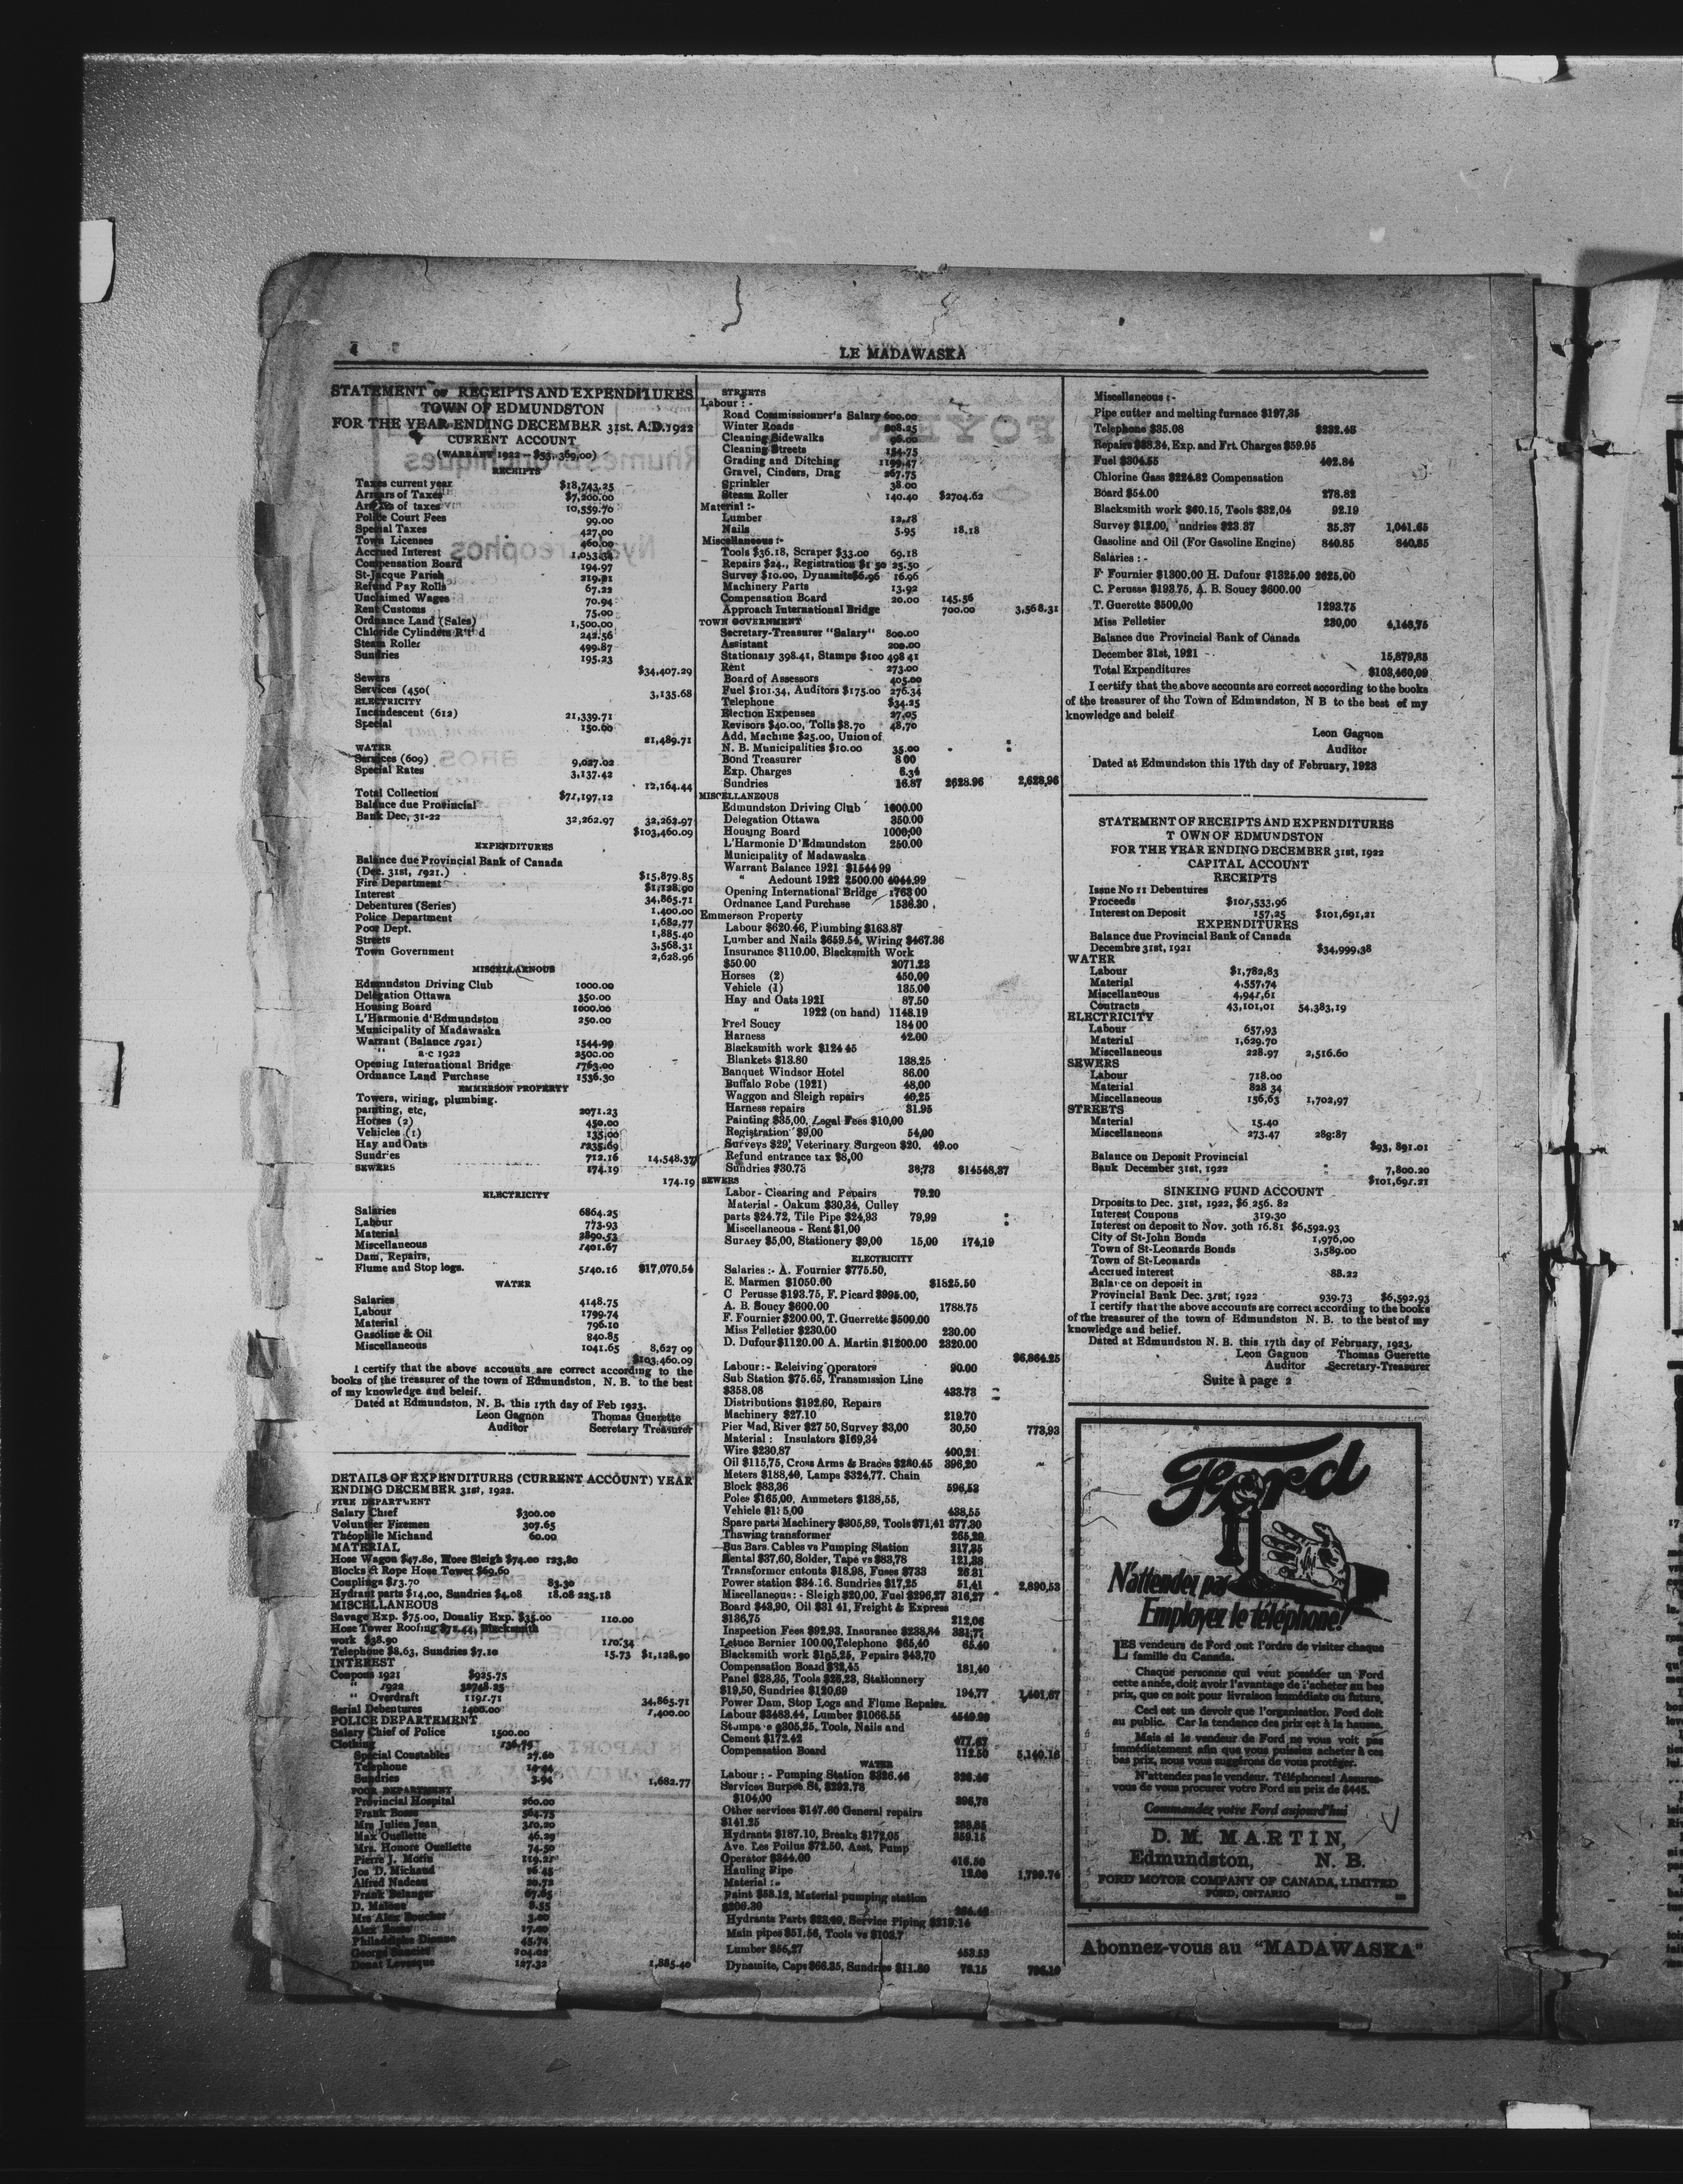 4
LE MADAWASKA
STATEMENT OF RECEIPTS AND EXPENDITURES
TOWN OF EDMUNDSTON
FOR THE YEAR ENDING DECEMBER 31st, A.D. 1922
CURRENT ACCOUNT
(WARRANT 1922 — $53,369,00)
RECEIPTS
Taxes current year $18,743.25
Arrears of Taxes $7,200.00
of taxes 10,559.70
Police Court Fees 99.00
Special Taxes 427,00
Town Licenses 460.00
Accrued Interest 1,053.34
Compensation Board 194.97
St-Jacque Parish 219.21
Refund Pay Rolls 67.22
Unclaimed Wages 70.94
Rent Customs 75.00
Ordnance Land (Sales) 1,500.00
Chloride Cylinders R't'd 242.56
Steam Roller 499.87
Sundries 195.23
$34,407.29
Sewers
Services (450( 3,135.68
ELECTRICITY
Incandescent (612) 21,339.71
Special 150.00
21,489.71
WATER
Services (609) 9,027.02
Special Rates 3,137.42
12,164.44
Total Collection $71,197.12
Balance due Provincial
Bank Dec, 31-22 32,262.97 32,262.97
$103,460.09
EXPENDITURES
Balance due Provincial Bank of Canada
(Dec. 31st, 1921.) $15,879.85
Fire Department $1,128.90
Interest 34,865.71
Debentures (Series) 1,400.00
Police Department 1,682,77
Poor Dept. 1,885.40
Streets 3,568.31
Town Government 2,628.96
MISCELLARNOUS
Edmundston Driving Club 1000.00
Delegation Ottawa 350.00
Housing Board 1000.00
L'Harmonie d'Edmundston 250.00
Municipality of Madawaska
Warrant (Balance 1921) 1544.99
" a-c 1922 2500.00
Opening International Bridge 1763.00
Ordnance Land Purchase 1536.30
EMMERSON PROPERTY
Towers, wiring, plumbing.
painting, etc, 2071.23
Horses (2) 450.00
Vehicles (1) 135.00
Hay and Oats 1235.69
Sundries 712.16 14,548.37
SEWERS 174.19
174.19
ELECTRICITY
Salaries 6864.25
Labour 773.93
Material 2890.53
Miscellaneous 1401.67
Dam, Repairs,
Flume and Stop logs. 5140.16 $17,070.54
WATER
Salaries 4148.75
Labour 1799.74
Material 796.10
Gasoline & Oil 840.85
Miscellaneous 1041.65 8,627 09
$103,460.09
I certify that the above accounts are correct according to the
books of the treasurer of the town of Edmundston, N. B. to the best
of my knowledge and beleif.
Dated at Edmundston, N. B. this 17th day of Feb 1923.
Leon Gagnon Thomas Guerette
Auditor Secretary Treasurer
DETAILS OF EXPENDITURES (CURRENT ACCOUNT) YEAR
ENDING DECEMBER 31st, 1922.
FIRE DEPARTMENT
Salary Chief $300.00
Volunteer Firemen 307.65
Théophile Michaud 60.00
MATERIAL
Hose Wagon $47.80, Hore Sleigh $74.00 123,80
Blocks & Rope Hose Tower $69.60
Couplings $13.70 83.30
Hydrant parts $14.00, Sundries $4.08 18.08 225.18
MISCELLANEOUS
Savage Exp. $75.00, Donaliy Exp. $35.00 110.00
Hose Tower Roofing $71.44, Blacksmith
work $38.90 110.34
Telephone $8.63, Sundries $7.10 15.73 $1,128.90
INTEREST
Coupons 1921 $925.75
" 1922 32748.25
" Overdraft 1191.71 34,865.71
Serial Debentures 1400.00 1,400.00
POLICE DEPARTEMENT
Salary Chief of Police 1500.00
Clothing 136.75
Special Constables 27.60
Telephone 14.44
Sundries 3.94 1,682.77
POOR DEPARTMENT
Provincial Hospital 260.00
Frank Bosse 564.75
Mrs Julien Jean 310.20
Max Ouellette 46.29
Mrs. Honore Ouellette 74.50
Pierre J. Morin 119.27
Jos D. Michaud
Alfred Nadeau
Frank Belanger
D. Malone 8.55
Mrs Alex Boucher 3.00
Alex
Philadelphe Dionne 45.74
George Saucier
Donat Levesque 127.32 1,885.40
STREETS
Labour : -
Road Commissionner's Salary 600.00
Winter Roads 208.25
Cleaning Sidewalks
Cleaning Streets
Grading and Ditching 1199.47
Gravel, Cinders, Drag 267.75
Sprinkler 38.00
Steam Roller 140.40 $2704.62
Material :-
Lumber 12.18
Nails 5.95 18.18
Miscellaneous :-
Tools $36.18, Scraper $33.00 69.18
Repairs $24., Registration $1 50 25.50
Survey $10.00, Dynamite $6.96 16.96
Machinery Parts 13.92
Compensation Board 20.00 145.56
Approach International Bridge 700.00 3,568.31
TOWN GOVERNMENT
Secretary-Treasurer "Salary" 800.00
Assistant 200.00
Stationary 398.41, Stamps $100 498 41
Rent 273.00
Board of Assessors 405.00
Fuel $101.34, Auditors $175.00 276.34
Telephone $34.25
Election Expenses 27.05
Revisors $40.00, Tolls $8.70 48,70
Add, Machine $25.00, Union of
N. B. Municipalities $10.00 35.00
Bond Treasurer 8 00
Exp. Charges 6.34
Sundries 16.87 2628.96 2,628,96
MISCELLANEOUS
Edmundston Driving Club 1000.00
Delegation Ottawa 350.00
Housing Board 1000;00
L'Harmonie D'Edmundston 250.00
Municipality of Madawaska
Warrant Balance 1921 $1544 99
" Aedount 1922 2500.00 4044.99
Opening International Bridge 1763 00
Ordnance Land Purchase 1536.30
Emmerson Property
Labour $620.46, Plumbing $163.87
Lumber and Nails $659.54, Wiring $467.36
Insurance $110.00, Blacksmith Work
$50.00 2071.23
Horses (2) 450.00
Vehicle (1) 135.00
Hay and Oats 1921 87.50
" 1922 (on hand) 1148.19
Fred Soucy 184 00
Harness 42.00
Blacksmith work $124 45
Blankets $13.80 138.25
Banquet Windsor Hotel 86.00
Buffalo Robe (1921) 48,00
Waggon and Sleigh repairs 40,25
Harness repairs 31.95
Painting $35,00, Legal Fees $10,00
Registration $9,00 54,00
Surveys $29, Veterinary Surgeon $20. 49.00
Refund entrance tax $8,00
Sundries $30.73 38;73 $14548,37
SEWERS
Labor - Clearing and Pepairs 79.20
Material - Oakum $30,34, Culley
parts $24.72, Tile Pipe $24,93 79,99
Miscellaneous - Rent $1,00
Survey $5,00, Stationery $9,00 15,00 174,19
ELECTRICITY
Salaries :- A. Fournier $775.50,
E. Marmen $1050.00 $1825.50
C Perusse $193.75, F. Picard $995.00,
A. B. Soucy $600.00 1788.75
F. Fournier $200.00, T. Guerrette $500.00
Miss Pelletier $230.00 230.00
D. Dufour $1120.00 A. Martin $1200.00 2320.00
$6,864.25
Labour :- Releiving Operators 90.00
Sub Station $75.65, Transmission Line
$358.08 433.73
Distributions $192.60, Repairs
Machinery $27.10 219.70
Pier Mad, River $27 50, Survey $3,00 30,50 773,93
Material : Insulators $169,34
Wire $230,87 400,21
Oil $115,75, Cross Arms & Braces $280.45 396,20
Meters $188,40, Lamps $324,77. Chain
Block $83,36 596,53
Poles $165,00, Ammeters $138,55,
Vehicle $135,00 438,55
Spare parts Machinery $305,89, Tools $71,41 377.30
Thawing transformer 265,20
Bus Bars. Cables vs Pumping Station 217,25
Rental $37,60, Solder, Tape vs $83,78 121,38
Transformer cutouts $18,98, Fuses $733 26.31
Power station $34.16. Sundries $17,25 51,41 2,890,53
Miscellaneous : - Sleigh $20,00, Fuel $296,27 316,27
Board $43,90, Oil $31 41, Freight & Express
$136,75 212,06
Inspection Fees $92,93, Insurance $238,84 331,77
Letuce Bernier 100.00, Telephone $65,40 65.40
Blacksmith work $105,25, Pepairs $43,70
Compensation Board $32,45 181,40
Panel $28,35, Tools $26,23, Stationnery
$19,50, Sundries $120,69 194,77 1,401,67
Power Dam, Stop Logs and Flume Repairs.
Labour $3483.44, Lumber $1066.55 4549.99
Stumpage $305,25, Tools, Nails and
Cement $172.42 477.67
Compensation Board 112.50 5,140.16
WATER
Labour : - Pumping Station $326.46 326.46
Services Burpee St, $292.78
$104,00 396,78
Other services $147.60 General repairs
$141.25 288,85
Hydrants $187.10, Breaks $172,05 359.15
Ave. Les Poilus $72.50, Asst. Pump
Operator $344.00 416.50
Hauling Pipe 12.00 1,799.74
Material :-
Paint $58.12, Material pumping station
$206.30
Hydrants Parts , Service Piping $219.14
Main pipes $51.56, Tools vs
Lumber $56,27 453.53
Dynamite, Caps $66.35, Sundries $11.80 78.15 796.10
Miscellaneous :-
Pipe cutter and melting furnace $197,35
Telephone $35.08 $232.45
Repairs $38.34, Exp. and Frt. Charges $59.95
Fuel $304.55 402.84
Chlorine Gass $224.82 Compensation
Board $54.00 278.82
Blacksmith work $60.15, Tools $32,04 92.19
Survey $12.00, undries $23.37 35.37 1,041.65
Gasoline and Oil (For Gasoline Engine) 840.85 840,85
Salaries : -
F. Fournier $1300.00 H. Dufour $1325.00 2625,00
C. Perusse $193.75, A. B. Soucy $600.00
T. Guerette $500,00 1293.75
Miss Pelletier 230,00 4,148,75
Balance due Provincial Bank of Canada
December 31st, 1921 15,879,85
Total Expenditures $103,460,09
I certify that the above accounts are correct according to the books
of the treasurer of the Town of Edmundston, N B to the best of my
knowledge and beleif
Leon Gagnon
Auditor
Dated at Edmundston this 17th day of February, 1923
STATEMENT OF RECEIPTS AND EXPENDITURES
T OWN OF EDMUNDSTON
FOR THE YEAR ENDING DECEMBER 31st, 1922
CAPITAL ACCOUNT
RECEIPTS
Issue No 11 Debentures
Proceeds $101,533,96
Interest on Deposit 157,25 $101,691,21
EXPENDITURES
Balance due Provincial Bank of Canada
Decembre 31st, 1921 $34,999,38
WATER
Labour $1,782,83
Material 4,557,74
Miscellaneous 4,941,61
Contracts 43,101,01 54,383,19
ELECTRICITY
Labour 657,93
Material 1,629.70
Miscellaneous 228.97 2,516.60
SEWERS
Labour 718.00
Material 828 34
Miscellaneous 156,63 1,702,97
STREETS
Material 15.40
Miscellaneons 273.47 288:87
$93, 891.01
Balance on Deposit Provincial
Bank December 31st, 1922 " 7,800.20
$101,691.21
SINKING FUND ACCOUNT
Drposits to Dec. 31st, 1922, $6 256. 82
Interest Coupons 319.30
Interest on deposit to Nov. 30th 16.81 $6,592.93
City of St-John Bonds 1,976,00
Town of St-Leonards Bonds 3,589.00
Town of St-Leonards
Accrued interest 88.22
Balance on deposit in
Provincial Bank Dec. 31st, 1922 939.73 $6,592.93
I certify that the above accounts are correct according to the books
of the treasurer of the town of Edmundston N. B. to the best of my
knowledge and belief.
Dated at Edmundston N. B. this 17th day of February, 1923.
Leon Gagnon Thomas Guerette
Auditor Secretary-Treasurer
Suite à page 2
Ford
N'attendez pas
Employez le téléphone!
LES vendeurs de Ford ont l'ordre de visiter chaque
famille du Canada.
Chaque personne qui veut posséder un Ford
cette année, doit avoir l'avantage de l'acheter au bas
prix, que ce soit pour livraison immédiate ou future,
Ceci est un devoir que l'organisation Ford doit
au public. Car la tendance des prix est à la hausse.
Mais si le vendeur de Ford ne vous voit pas
immédiatement afin que vous puissiez acheter à ces
bas prix, nous vous suggérons de vous protéger.
N'attendez pas le vendeur. Téléphonez! Assurez-
vous de vous procurer votre Ford au prix de $445.
Commandez votre Ford aujourd'hui
D. M. MARTIN,
Edmundston, N. B.
FORD MOTOR COMPANY OF CANADA, LIMITED
FORD, ONTARIO
Abonnez-vous au "MADAWASKA"